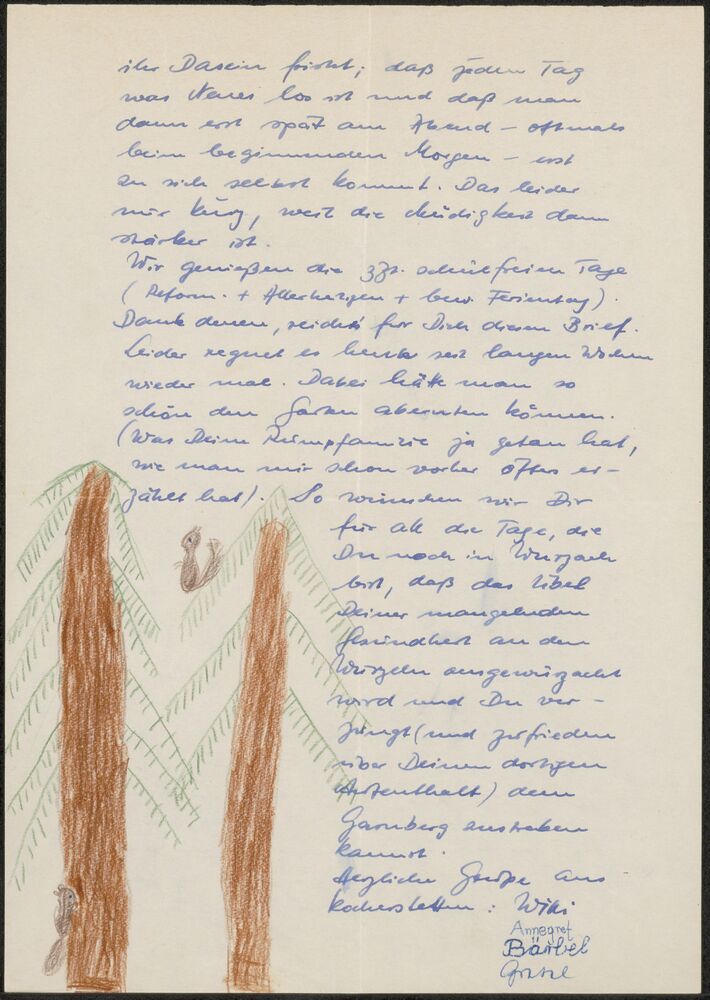 ihr Dasein fristet; daß jeden Tag
was Neues los ist und daß man
dann erst spät am Abend – oftmals
beim beginnenden Morgen – erst
zu sich selbst kommt. Das leider
nur kurz, weil die Müdigkeit dann
stärker ist.
Wir genießen die zZt. schulfreien Tage
(Reform. + Allerheiligen + bew. Ferientag).
Dank denen, reicht's für Dich diesen Brief.
Leider regnet es heute seit langen Wochen
wieder mal. Dabei hätte man so
schön den Garten abernten können.
(Was Deine Rumpffamilie ja getan hat,
wie man mir schon vorher öfters er-
zählt hat). So wünschen wir Dir
für all die Tage, die
Du noch in Wurzach
bist, daß das Übel
Deiner mangelnden
Gesundheit an den
Wurzeln ausgewurzacht
wird und Du ver-
jüngt (und zufrieden
über Deinen dortigen
Aufenthalt) dem
Garnberg zustreben
kannst.
Herzliche Grüße aus
Kocherstetten: Willi
Annegret
Bärbel
Gretel